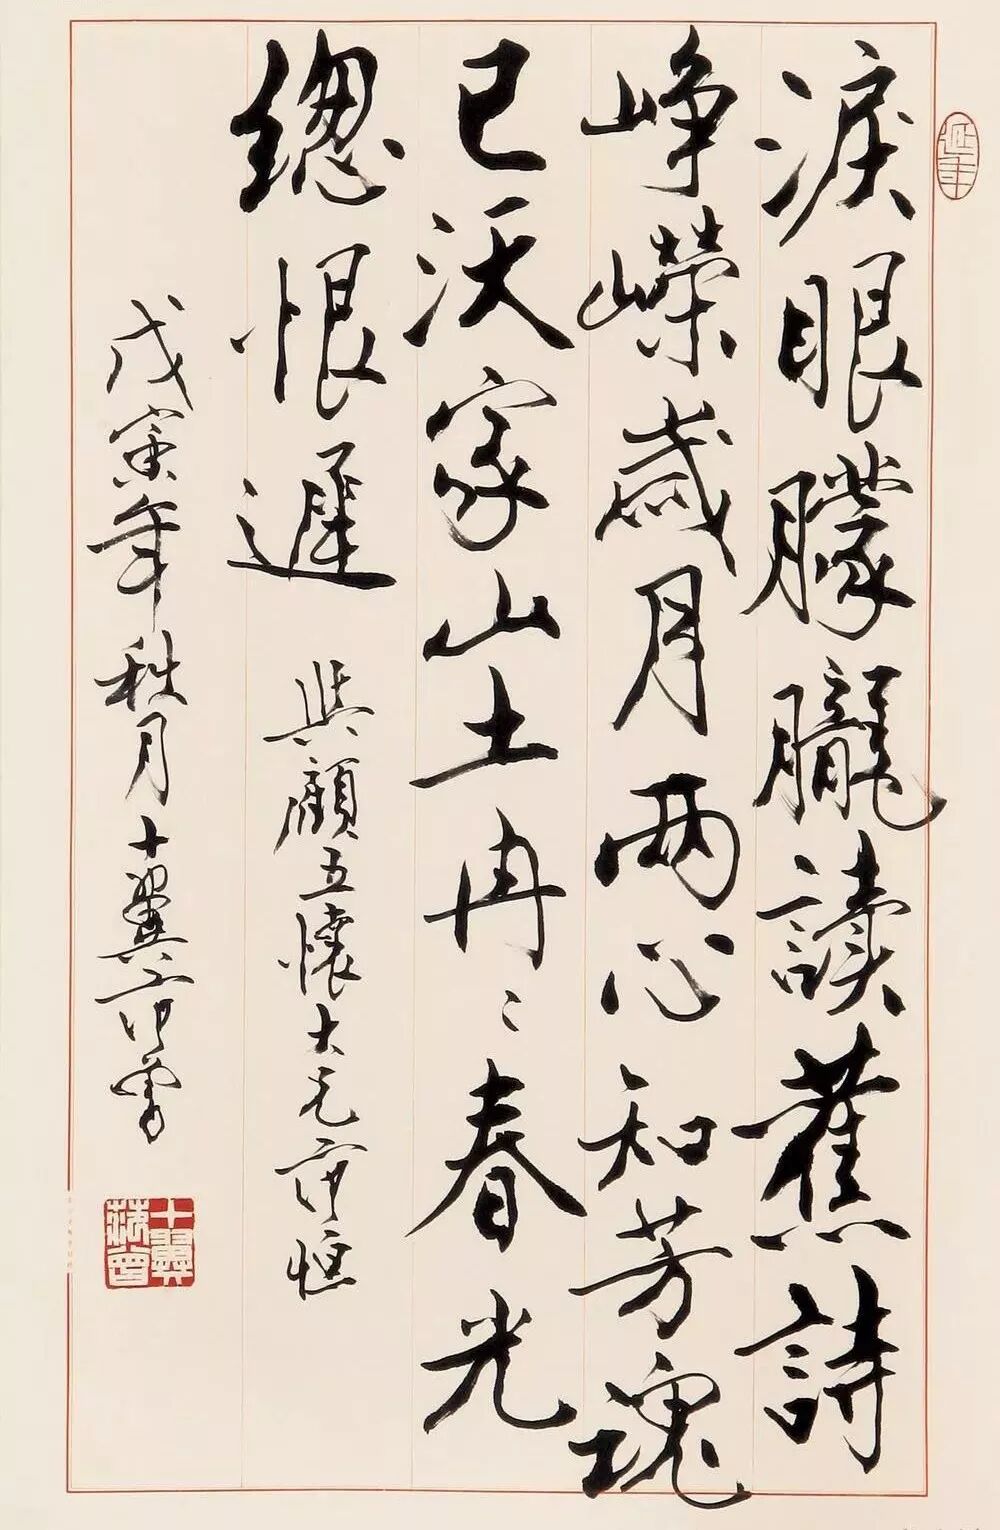 淚眼朦朧讀蕉詩
崢嶸歲月兩心知芳魂
已沃家山土冉〻春光
總恨遲 與顧五懷大兄范恆
戊寅年秋月十翼范曾
延年
十翼范曾